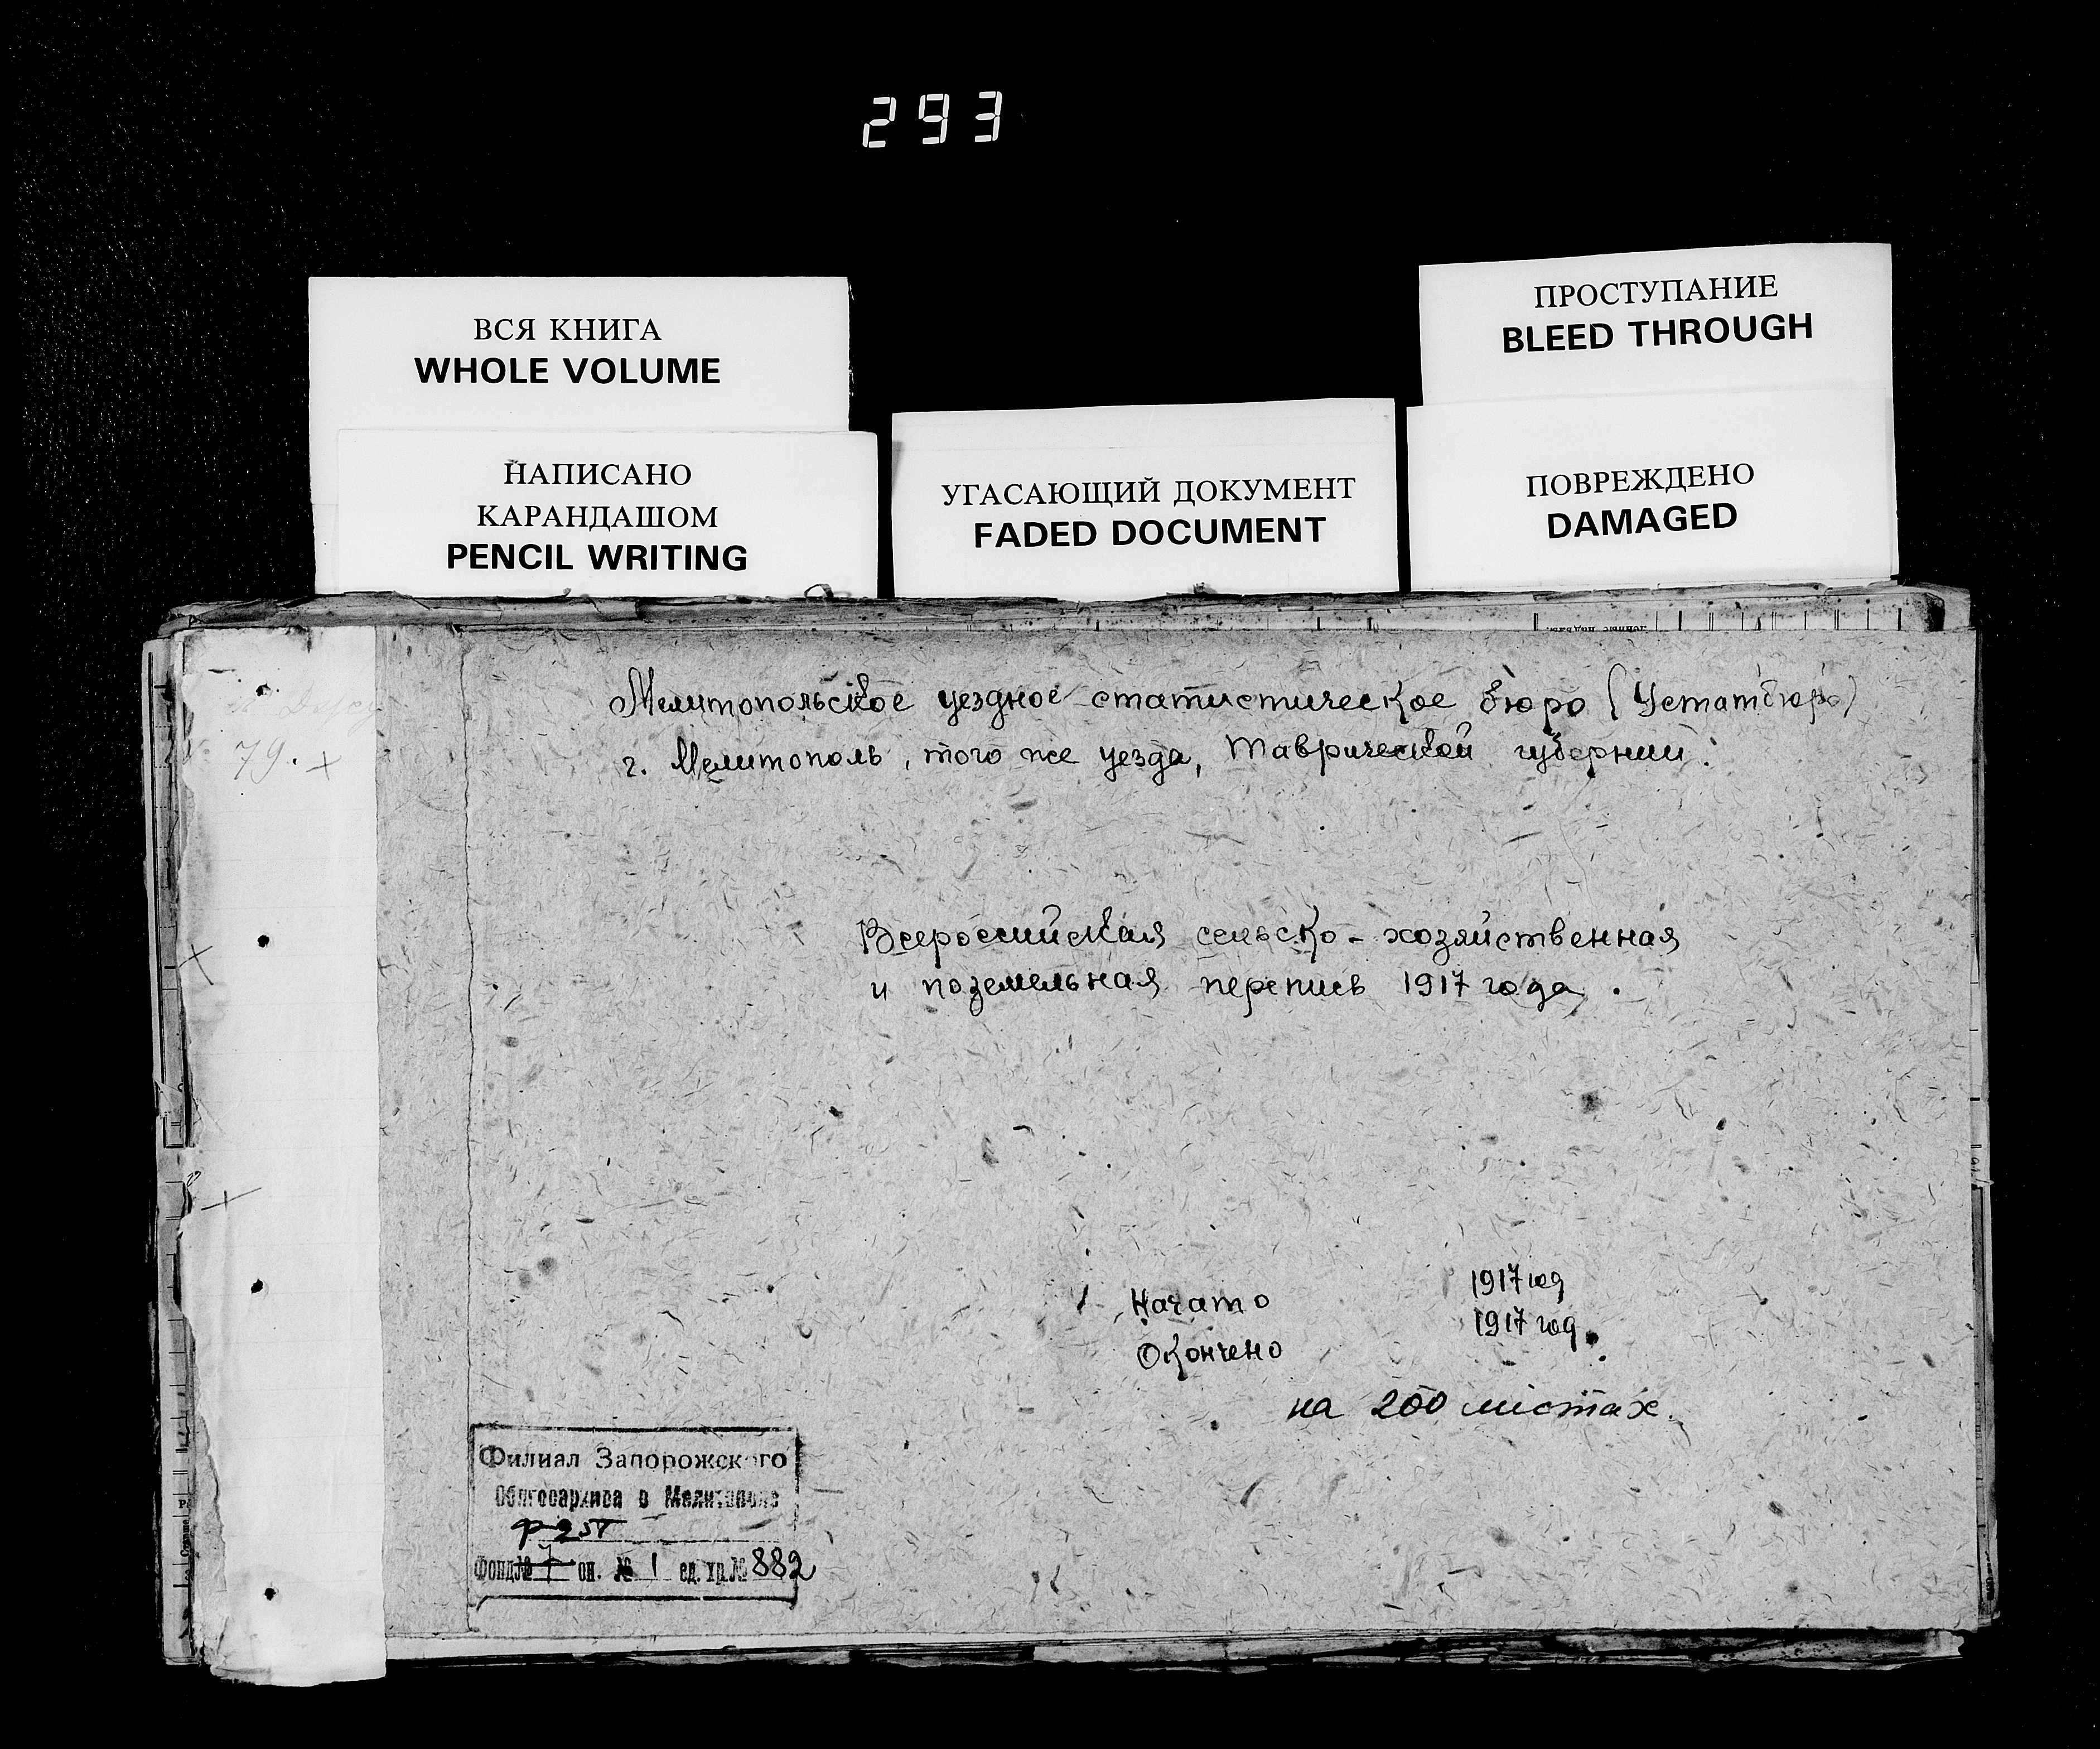 293
ВСЯ КНИГА
WHOLE VOLUME
НАПИСАНО
КАРАНДАШОМ
PENCIL WRITING
УГАСАЮЩИЙ ДОКУМЕНТ
FADED DOCUMENT
ПРОСТУПАНИЕ
BLEED THROUGH
ПОВРЕЖДЕНО
DAMAGED
79. х
Мелитопольское уездное статистическое бюро (Устатбюро)
г. Мелитополь, того же уезда, Таврической губернии.
Всероссийская сельско-хозяйственная
и поземельная перепись 1917 года.
Начато 1917 год
Окончено 1917 год.
на 200 листах.
Филиал Запорожского
Облгосархива в Мелитополе
Фонд № оп. № 1 ед. хр. № 882